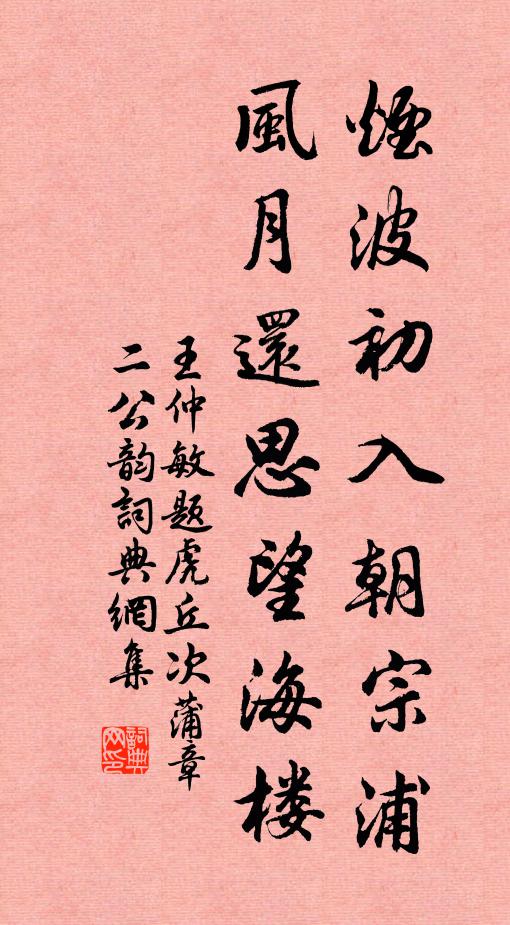 煙波初入朝宗浦
風月還思望海楼
王仲敏题虎丘次蒲章
二公韵詞典網集
詞典
网印